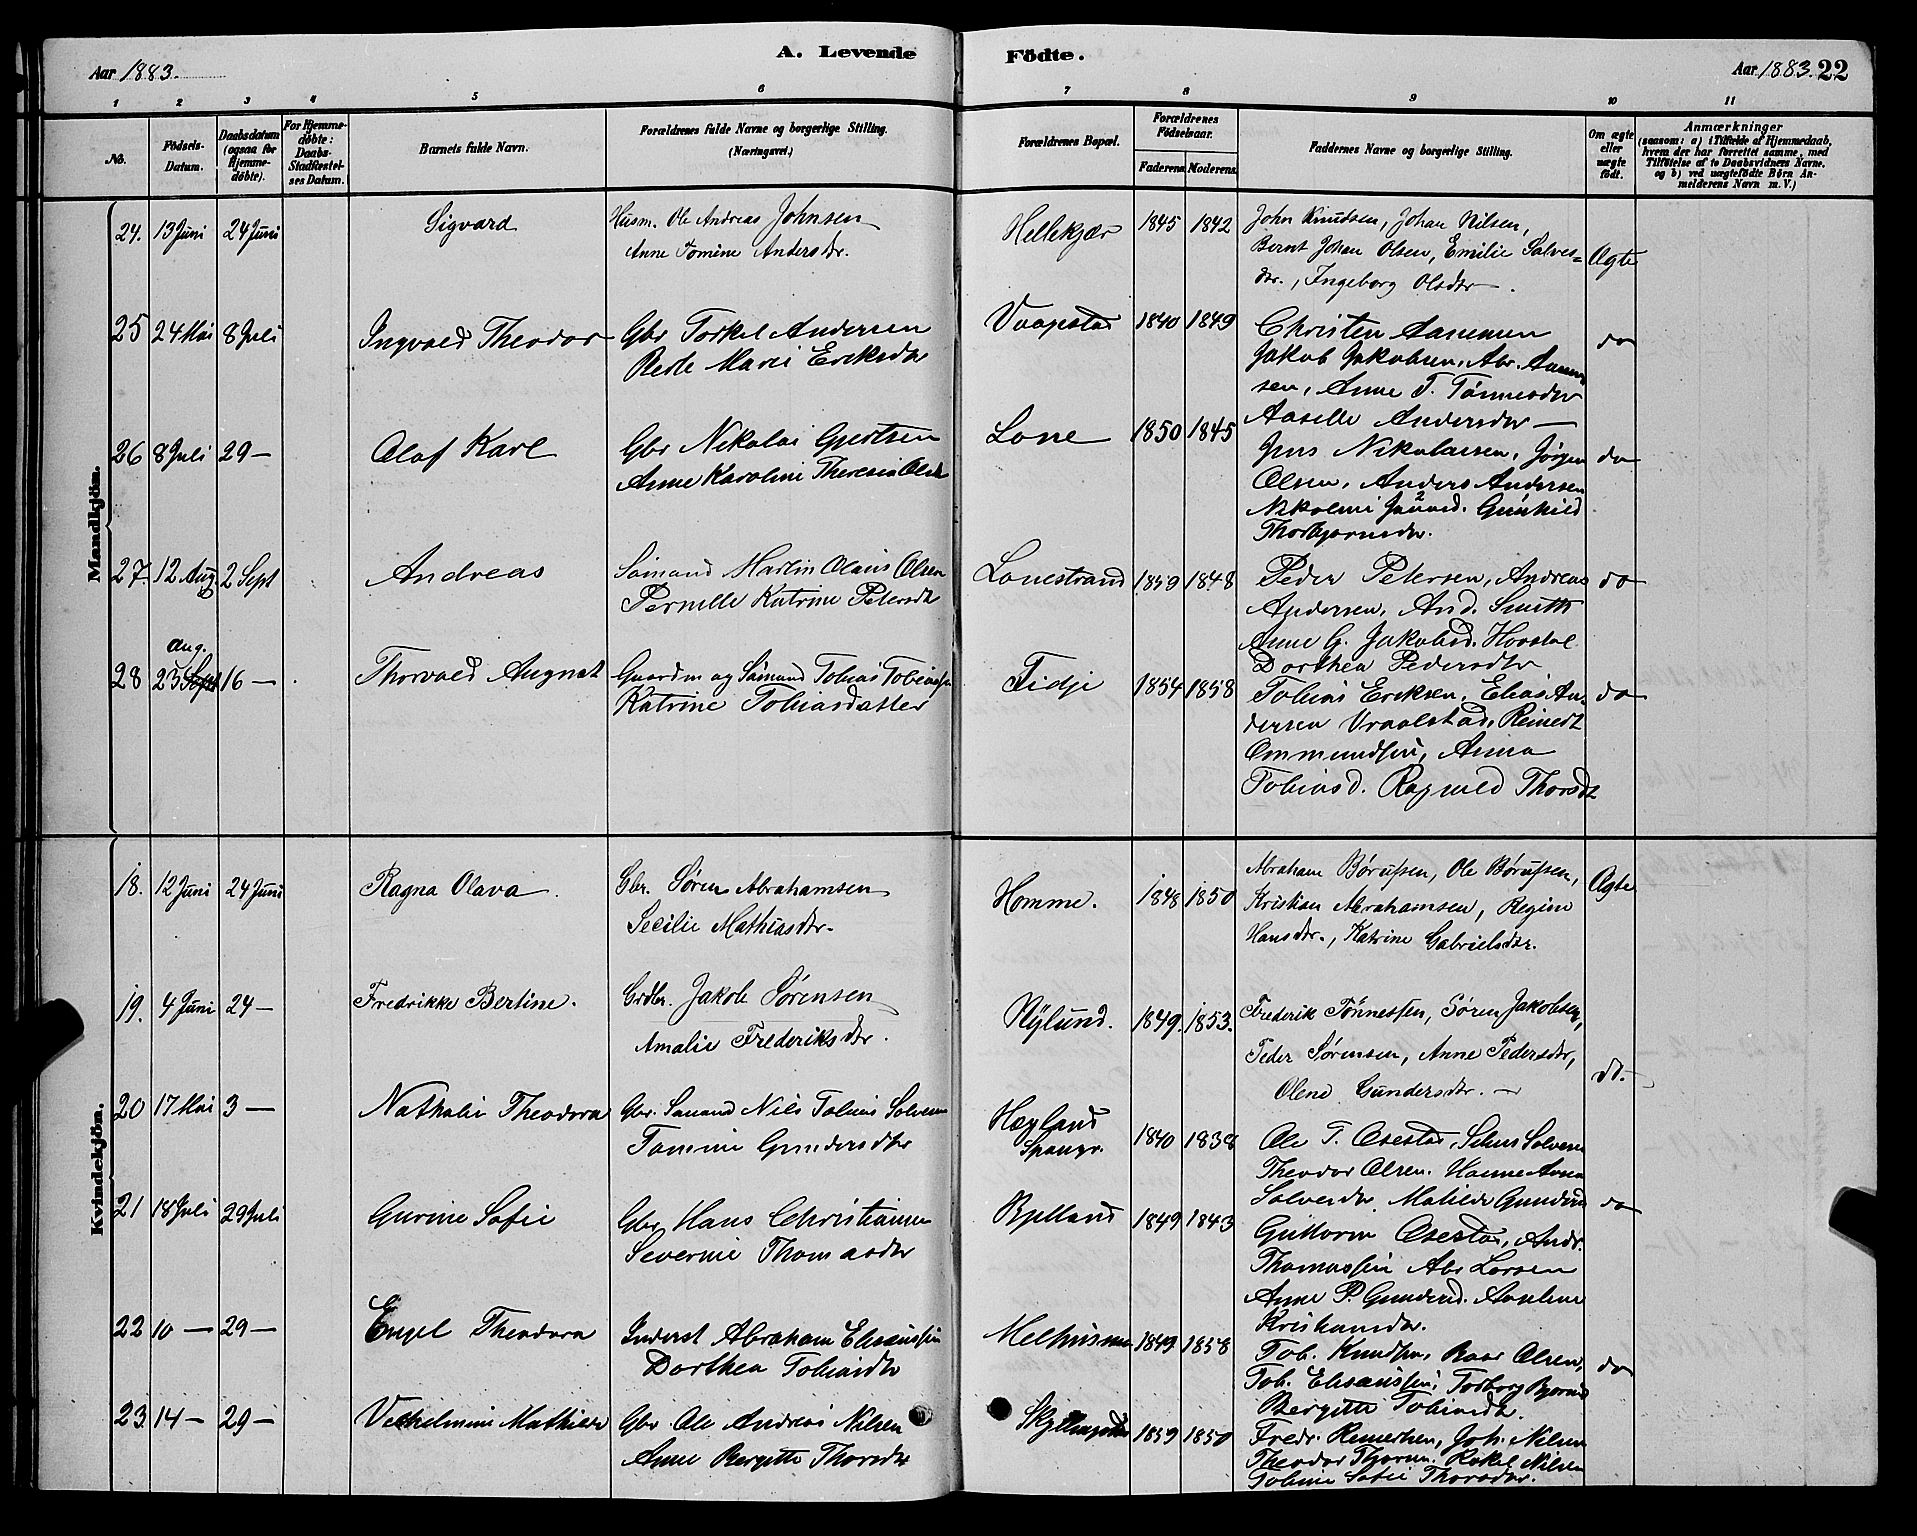 A. Levende Födte.
Aar 1883.
Aar 1883. 22
1 2 3 4 5 6 7 8 9 10 11
No.
Födsels-
Datum.
Daabsdatum
(ogsaa for
Hjemme-
döbte).
For Hjemme-
döbte:
Daabs-
Stadfæstel-
ses Datum.
Barnets fulde Navn.
Forældrenes fulde Navne og borgerlige Stilling.
(Næringsvei.)
Forældrenes Bopæl.
Forældrenes
Födselsaar.
Faderens Moderens
Faddernes Navne og borgerlige Stilling.
Om ægte
eller
uægte
födt.
Anmærkninger
(saasom: a) i Tilfælde af Hjemmedaab,
hvem der har forrettet samme, med
Tilföielse af to Daabsvidners Navne.
og b) ved uægtefödte Börn An-
melderens Navn m. V.)
Mandkjön.
24. 13 Juni 24 Juni Sigvard
Husm. Ole Andreas Johnsen
Anne Tomine Andersdr.
Hellekjær 1845 1842
John Knudsen, Johan Nilsen,
Bernt Johan Olsen, Emilie Salves=
dtr., Ingeborg Olsdtr.
Ægte
25 24 Mai 8 Juli Ingvald Theodor
Gbr Torkel Andersen
Berte Marie Eriksdtr
1840 1849
Christen Aanensen
Jakob Jakobsen, Abr. Aanen
sen, Anne T. Tønnesdtr
Aaselle Andersdtr
do
26 8 Juli 29 — Olaf Karl
Gbr Nikolai Gjertsen
Anne Karoline Theresia Olsdtr
Lone 1850 1845
Jens Nikolaisen, Jørgen
Olsen, Anders Andersen
Gunhild
Thorbjørnsdtr.
do
27. 12 Aug 2 Sept Andreas
Sømand Martin Olaus Olsen
Pernille Katrine Petersdtr
Lonestrand 1859 1848
Peder Petersen, Andreas
Andersen, And. Smith
Anne G. Jakobsd.
Dorthea Pedersdtr
do
Aug.
28 23 Sept 16 — Thorvald August
Gaardm og Sømand Tobias Tobiassen
Katrine Tobiasdatter
Fidje 1854 1858
Tobias Eriksen, Elias An-
dersen Vraalstad, Reinert
Ommundsen, Anna
Tobiasd. Ragnild Thorsdt
do
Kvindekjön.
18. 12 Juni 24 Juni Ragna Olava.
Gbr. Søren Abrahamsen
Secilie Mathiasdtr.
Homme. 1848 1850
Abraham Børufsen, Ole Børufsen,
Kristian Abrahamsen, Regine
Hansdtr., Katrine Gabrielsdtr.
Ægte
19. 4 Juni 24 — Fredrikke Bertine.
Jakob Sørensen
Amalie Frederiksdtr.
Nylund. 1849. 1853.
Frederik Tønnessen, Søren Jakobsen,
Peder Sørensen, Anne Pedersdtr,
Olene Gundersdtr. —
do.
20 17 Mai 3 — Nathalie Theodora
Gbr. Sømand Nils Tobias Salvesen
Tomine Gundersdtr
Høyland
1840 1838
Ole T. Osestad,
Theodor Olsen. Hanne Anna
Salvesdtr. Matilde Gundersd
21 18 Juli 29 Juli Gurine Sofie
Gbr Hans Christiansen
Severine Thomasdtr
Bjelland 1849 1843
Guttorm Osestad, Andr.
Thomassen Abr Larsen
Anne P. Gundersd.
Kristiansdtr.
do
22 10 — 29 — Engel Theodora
Inderst Abraham Eliassen
Dorthea Tobiasdtr
1849 1858
Tob. Knudsen, Roar Olsen,
Tob. Torborg
Bergitte Tobiasdtr.
do
23 14 — 29 — Vilhelmine Mathilde
Gbr Ole Andreas Nilsen
Anne Bergitte Thorsdtr
1859 1850
Fredr. Joh. Nilsen
Theodor Rakel Nilsen
Tobine Sofie Thorsdtr.